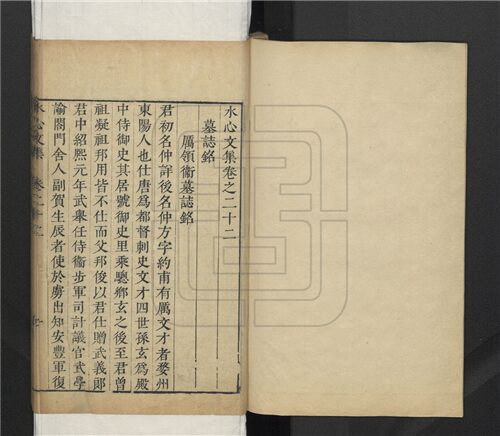 水心文集卷之二十二
墓誌銘
厲領衛墓誌銘
君初名仲詳後名仲方字約甫有厲文才者婺州
東陽人也仕唐為都督刺史文才四世孫玄為殿
中侍御史其居號御史里乘驄鄉玄之後至君曾
祖凝祖邦用皆不仕而父邦俊以君仕贈武義郎
君中紹熙元年武舉任侍衛步軍司計議官武學
諭閤門舍人副賀生辰者使於虜出知安豐軍復
水心文集 卷之二十二